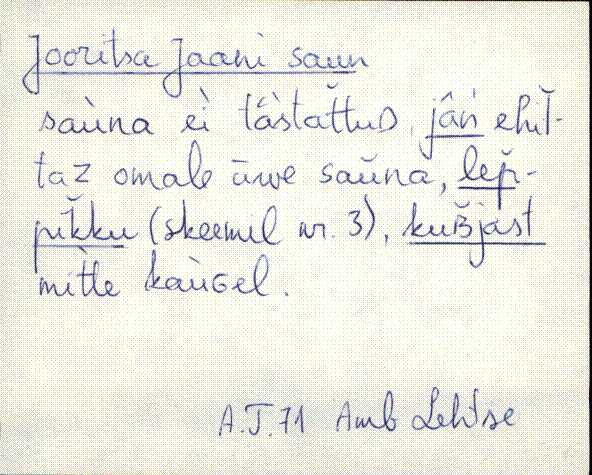 Jooritsa Jaani saun
saùna ei tä̀stat̆tuD, jâǹ ehit̆-
taz omale ūwe saŭna, lep̆-
pik̆ku (skeemil nr. 3), kuʙ̆jast
mitte kaùGel.
A.T.71 Amb Lehtse